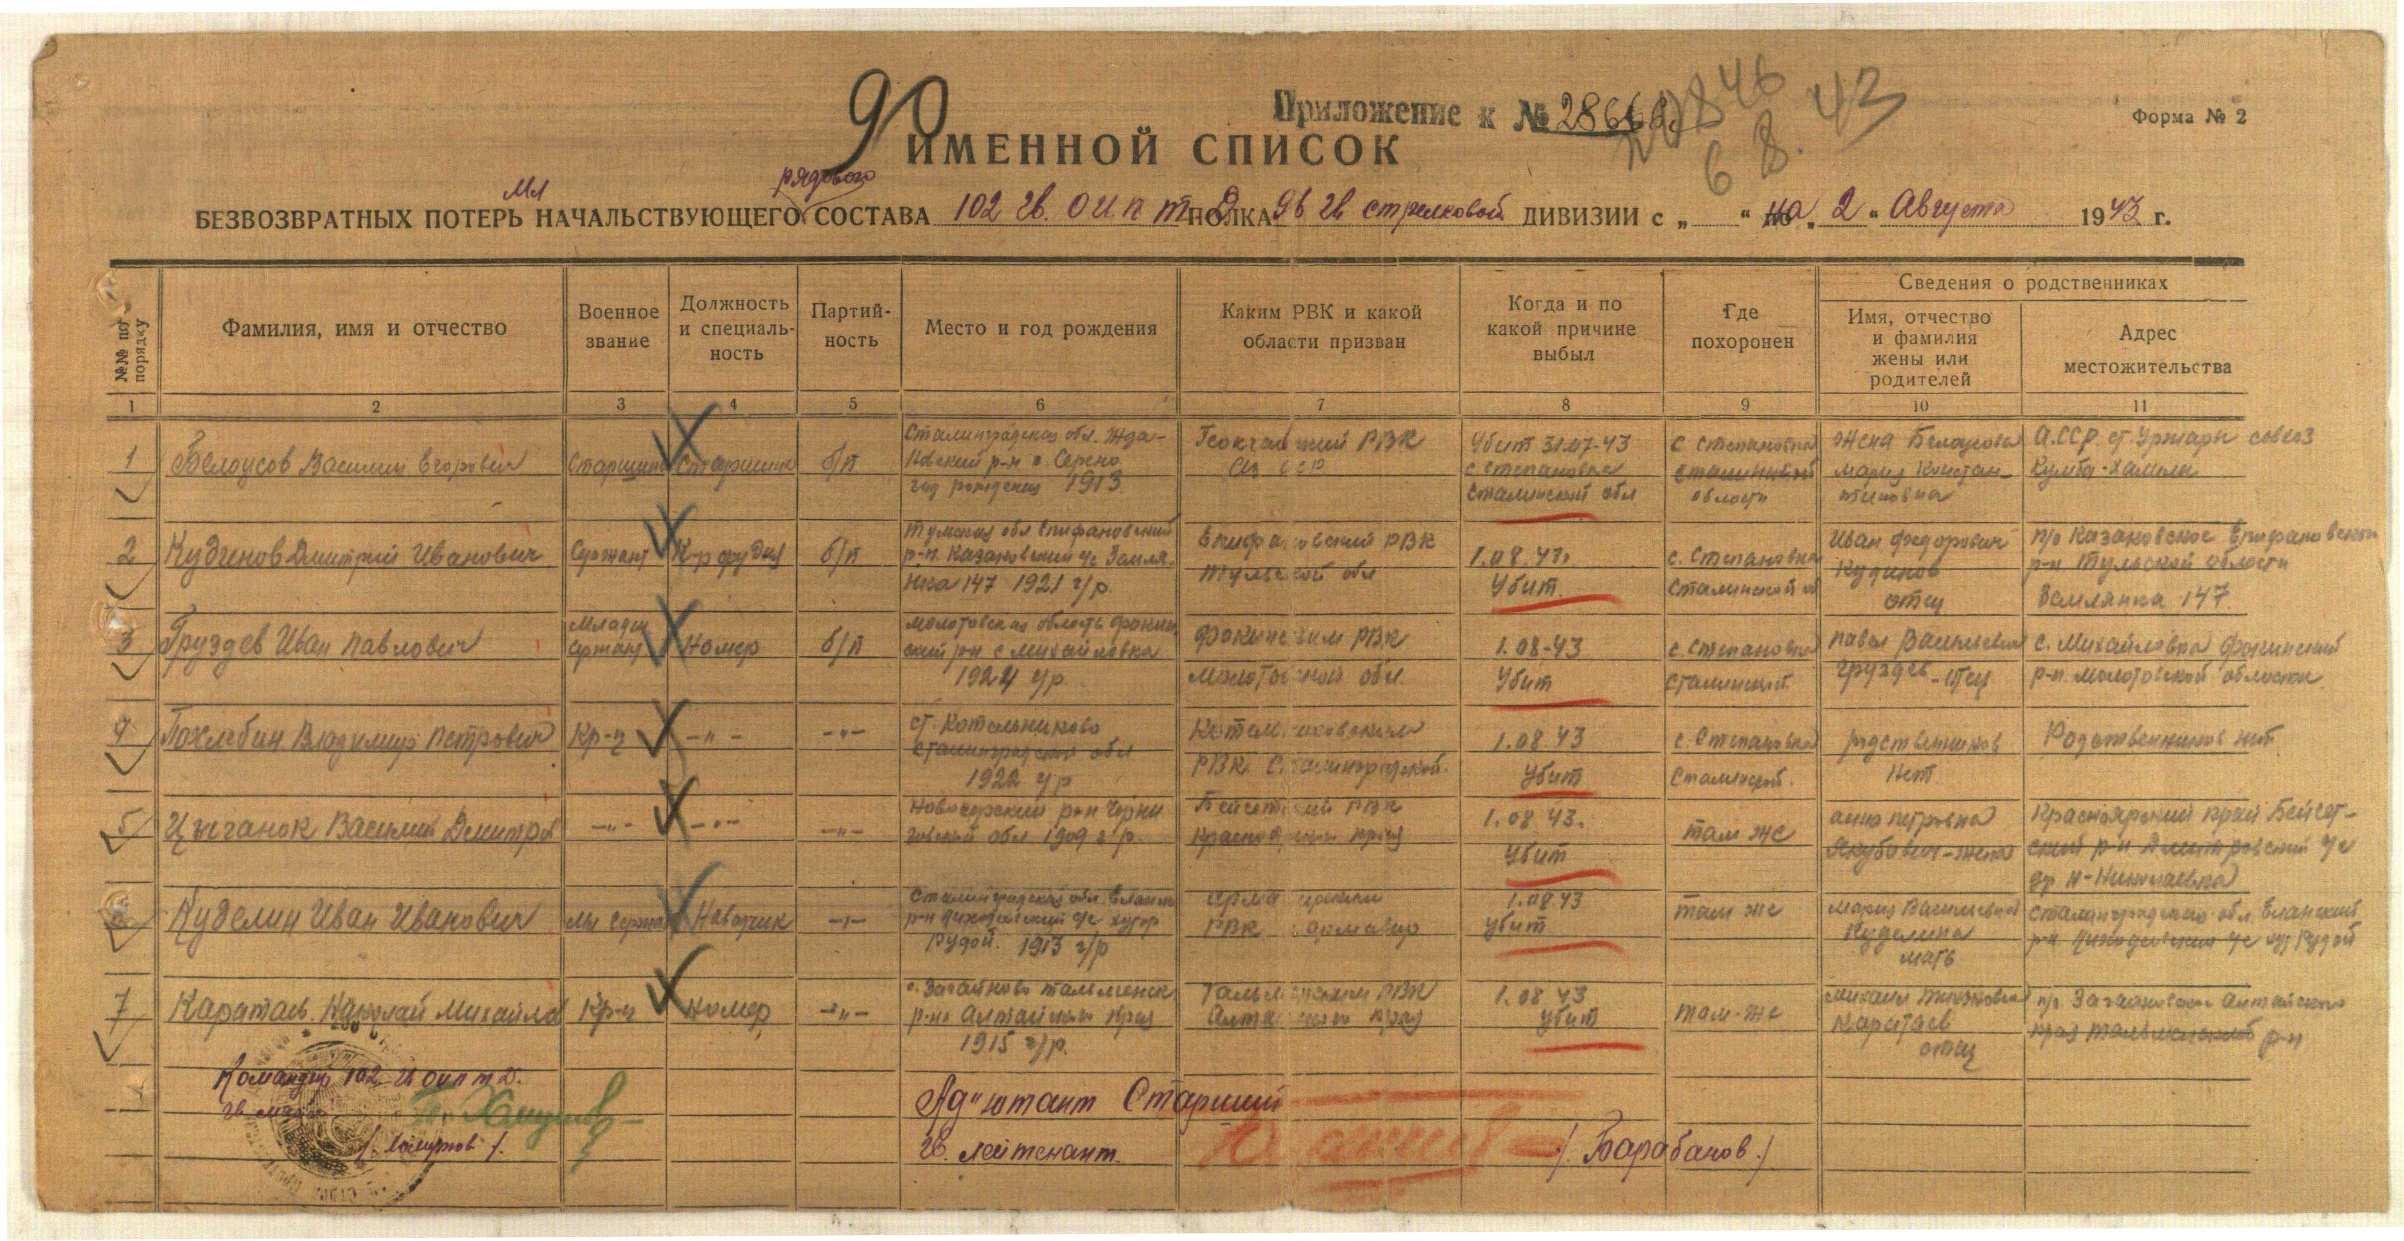 90
Приложение к № 28666.
20846
6 8. 43
Форма № 2
ИМЕННОЙ СПИСОК
Мл рядового
БЕЗВОЗВРАТНЫХ ПОТЕРЬ НАЧАЛЬСТВУЮЩЕГО СОСТАВА 102 гв. ОИПТД ПОЛКА 96 гв стрелковой ДИВИЗИИ с „ “ на „ 2 “ Августа 1943 г.
№№ по порядку
Фамилия, имя и отчество
Военное звание
Должность и специаль-
ность
Партий-
ность
Место и год рождения
Каким РВК и какой
области призван
Когда и по
какой причине
выбыл
Где
похоронен
Сведения о родственниках
Имя, отчество
и фамилия
жены или
родителей
Адрес
местожительства
1 2 3 4 5 6 7 8 9 10 11
1 Белоусов Василий Егорович Старшина Старшина б/п
Сталинградская обл. Жда-
новский р-н с. Серено
год рождения 1913
РВК
Убит 31.07-43
с Степановка
Сталинской обл
с Степановка
Сталинской
области
жена Белоусова
Мария Констан-
тиновна
АССР, ст. Уржары совхоз
2 Кудинов Дмитрий Иванович Сержант К-р орудия б/п
Тульская обл Епифановский
р-н. Казановский с/с Земля
нка 147 1921 г/р.
Епифановский РВК
Тульской обл
1.08.43г.
Убит.
с. Степановка
Сталинской о
Иван Федорович
Кудинов
отец
п/о Казановское Епифановский
р-н Тульской области
Землянка 147.
3 Груздев Иван Павлович Младш Сержант Номер б/п
Молотовская область Фокин
ский р-н с Михайловка
1924 г/р
Фокинским РВК
Молотовской обл.
1.08-43
Убит
с. Степановка
Сталинской
Павел Васильевич
Груздев-отец
с. Михайловка Фокинский
р-н. Молотовской области
4 Похлебин Владимир Петрович Кр-ц -"- -"-
ст. Котельниково
Сталинградской обл
1922 г/р
Котельниковским
РВК Сталинградской.
1.08 43
Убит
с. Степановка
Сталинской.
родственников
нет
Родственников нет.
5 Цыганок Василий Дмитров -"- -"- -"-
р-н Черни
говской обл 1909 г/р.
РВК
края
1.08 43.
Убит
там же
Анна Петровна
Якубович-жена
Красноярский край Бейсет-
ский р-н Дмитровский с/с
др Н-Николаевка
6 Куделин Иван Иванович Мл Сержан Наводчик -"-
Сталинградская обл Еланск
р-н с/с хутор
Рудой. 1913 г/р
РВК Армавир
1.08 43
Убит
там же
Мария Васильевна
Куделина
мать
Сталинградская обл. Еланский
р-н. с/с Рудой
7 Каратаев Николай Михайло Кр-ц Номер -"-
с. Загайново Тальменск
р-на Алтайского края
1915 г/р.
Тальменским РВК
Алтайского края
1.08 43
Убит
там-же
Михаил
Каратаев
отец
п/о Загайновское Алтайского
края Тальменский р-н
Командир 102 гв ОИПТД.
гв. майор
Адъютант Старший
гв. лейтенант
/. Барабанов./